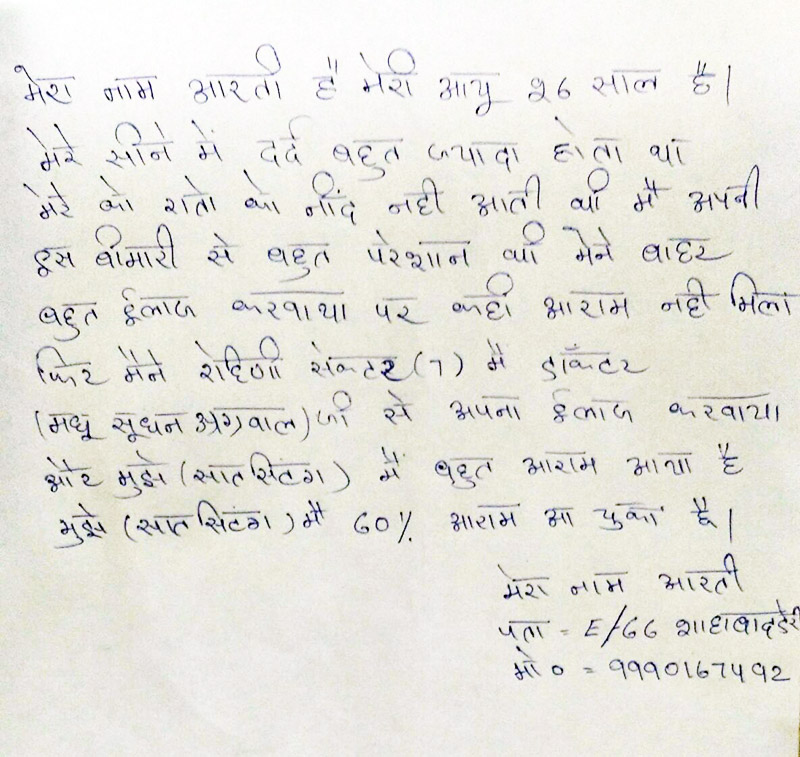 मेरा नाम आरती है मेरी आयु २6 साल है।
मेरे सीने में दर्द बहुत ज्यादा होता था
मेरे को रातो को नींद नही आती थी मै अपनी
इस बीमारी से बहुत परेशान थी मैने बाहर
बहुत ईलाज करवाया पर कही आराम नही मिला
फिर मैने रोहिणी सेक्टर (7) मै डॉक्टर
(मधू सूधन अग्रवाल) जी से अपना ईलाज करवाया
और मुझे (सात सिटिंग) मै बहुत आराम आया है
मुझे (सात सिटिंग) मै 60% आराम आ चुका है।
मेरा नाम आरती
पता = E/66 शाहाबाद डेरी
मो० = 9990167492